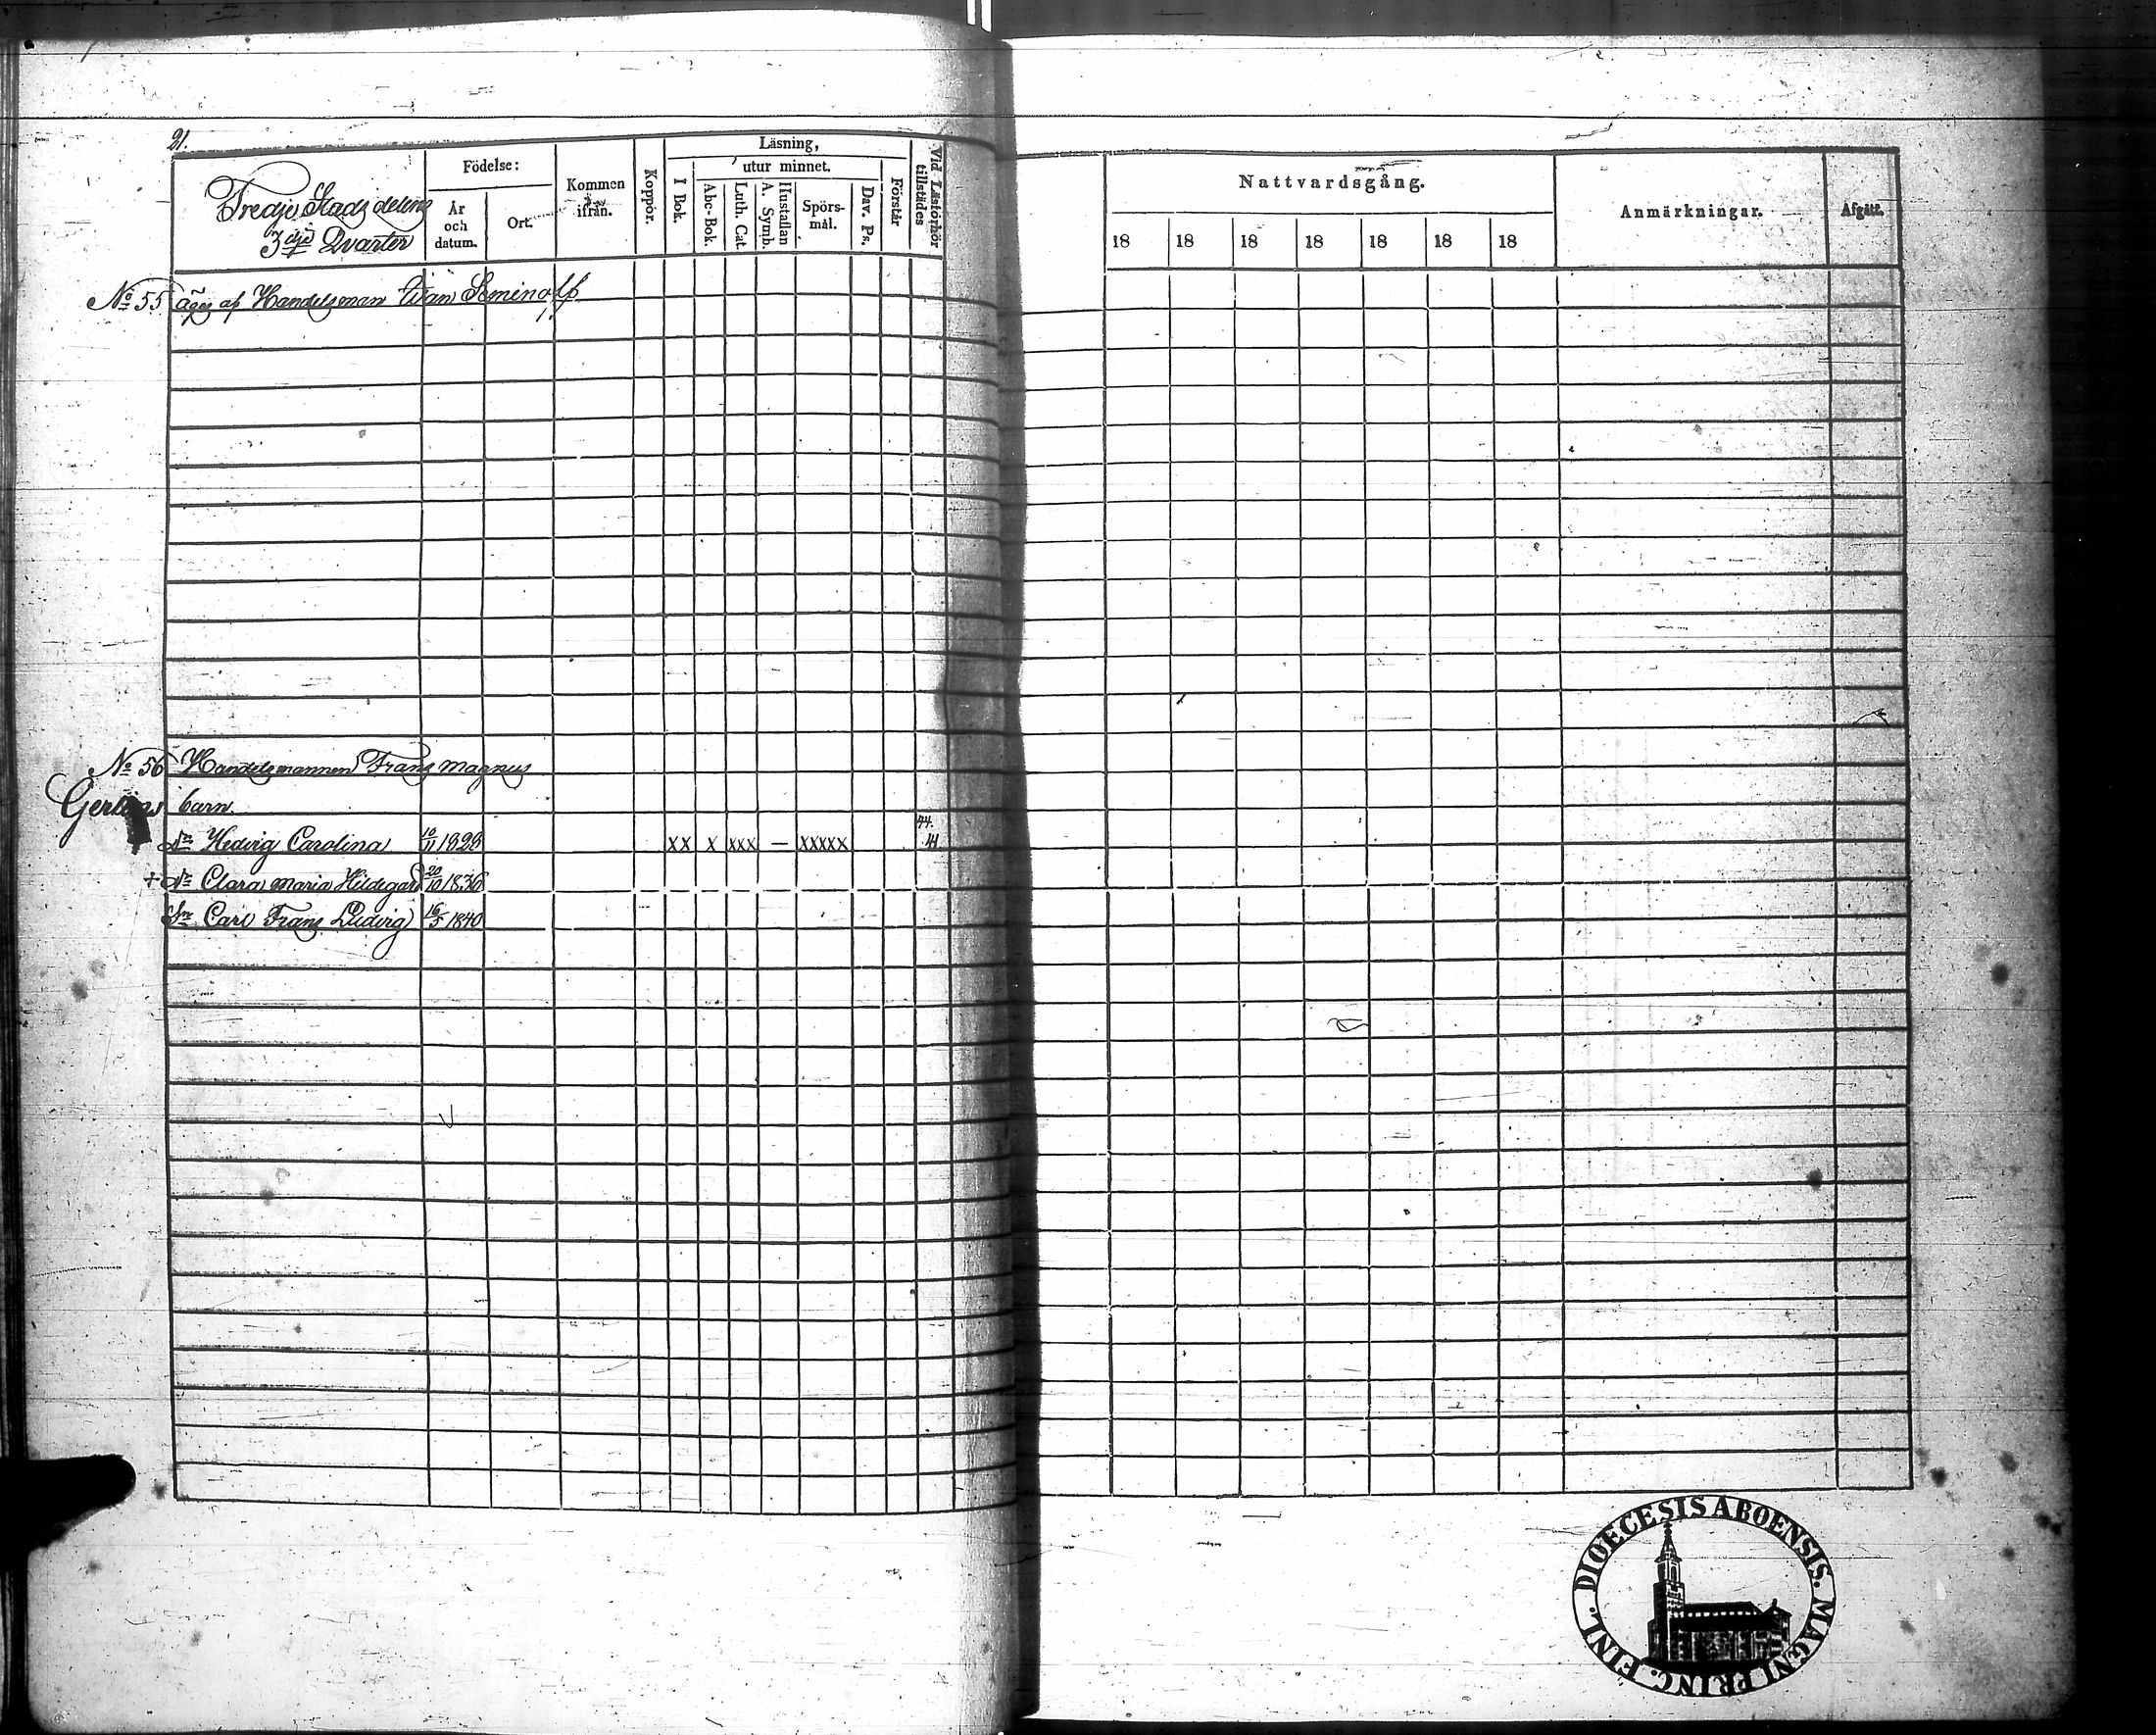 21.
Tredje Stads delen
3dje Qvarter
Födelse:
År och datum.
Ort.
Kommen ifrån.
Koppor.
Läsning,
I Bok.
utur minnet.
Abc-Bok.
Luth. Cat.
A. Symb. Hustaflan
Spörs-mål.
Dav. Ps.
Förstår
Vid Läsförhör tillstädes
Nattvardsgång.
18 18 18 18 18 18 18
Anmärkningar.
Afgått.
No 55 äges af Handelsman Ivan Seminoff
No 56 Handelsmannen Frans Magnus
barn.
Dr Hedvig Carolina 16/11 1829 XX X XXX — XXXXX 44. 41
+ Dr Clara Maria Hildegard 20/10 1836
Sn Carl Frans Ludvig 16/5 1840
DIOECESIS ABOENSIS. MAGNI PRINC. FINL.